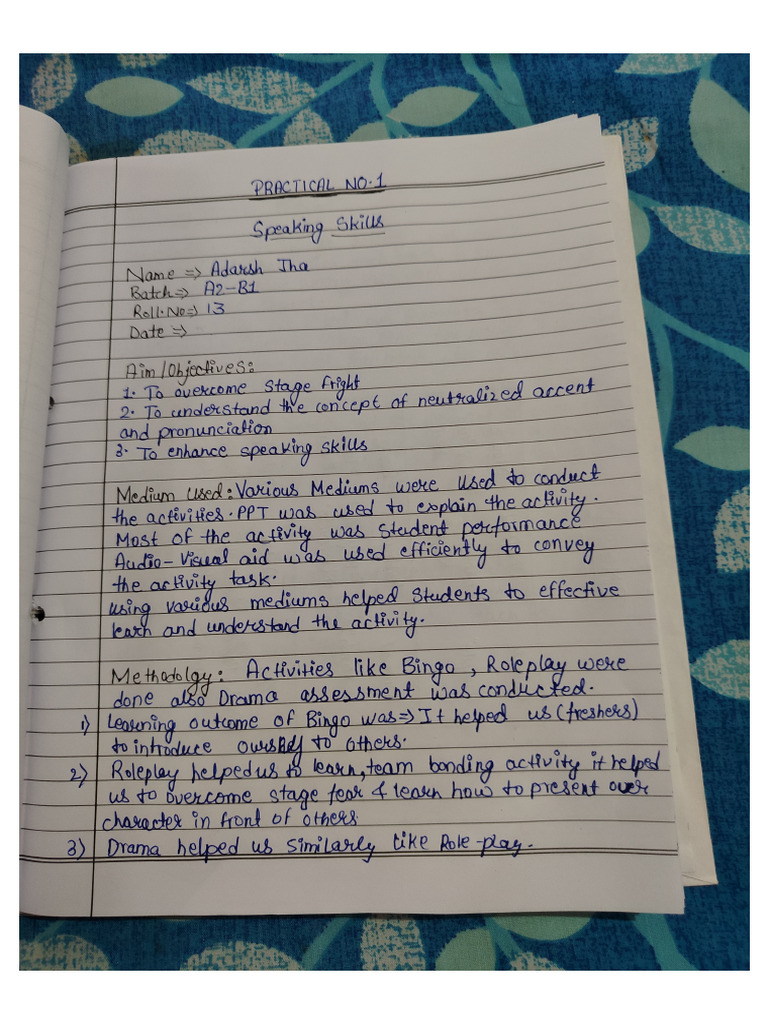 PRACTICAL NO.1
Speaking Skills
Name => Adarsh Jha
Batch => A2-B1
Roll.No => 13
Date =>
Aim/Objectives:
1. To overcome stage fright
2. To understand the concept of neutralized accent
and pronunciation
3. To enhance speaking skills
Medium Used: Various Mediums were used to conduct
the activities. PPT was used to explain the activity.
Most of the activity was student performance
Audio-Visual aid was used efficiently to convey
the activity task.
using various mediums helped students to effective
learn and understand the activity.
Methodolgy: Activities like Bingo, Roleplay were
done also Drama assessment was conducted.
1) Learning outcome of Bingo was => It helped us (freshers)
to introduce to others.
2) Roleplay helped us to learn, team bonding activity it helped
us to overcome stage fear & learn how to present over
character in front of others.
3) Drama helped us similarly like Role-play.